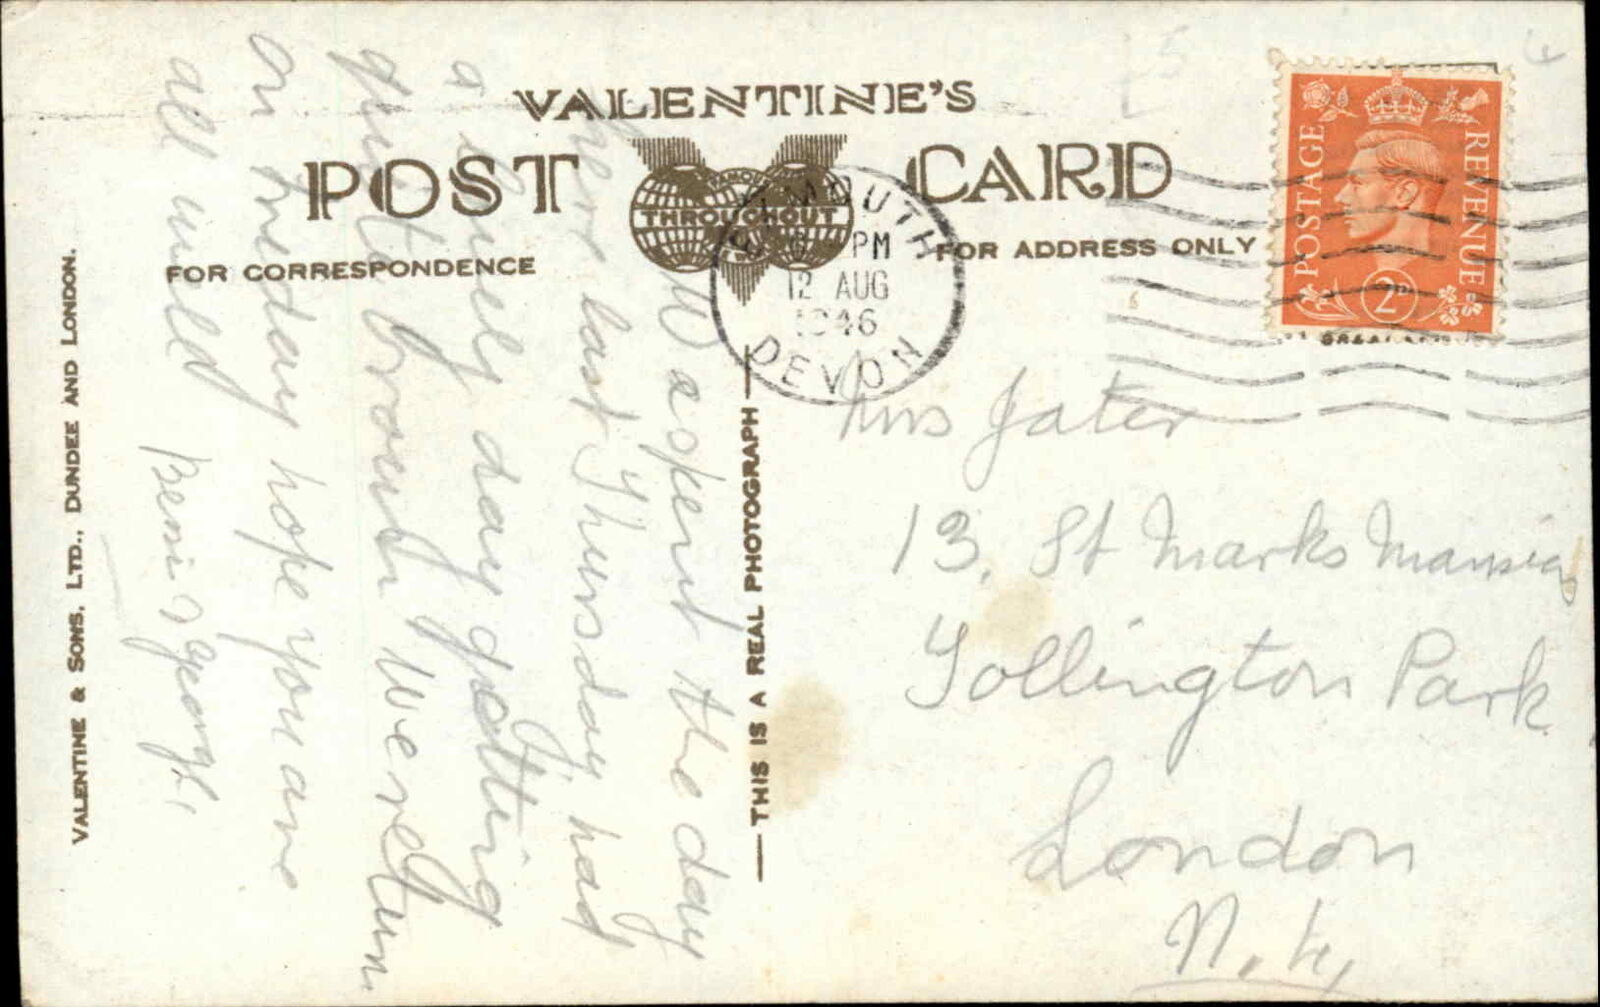 VALENTINE'S
POST CARD
THROUGHOUT
FOR CORRESPONDENCE
FOR ADDRESS ONLY
PM
12 AUG
1946
DEVON
POSTAGE
REVENUE
2D
W aspent the day
here last Thursday had
a lovely day getting
quite brown We return
on friday hope you are
all well
George
Mrs Jater
13, St Marks Mansion
Tollington Park
London
N. 4,
THIS IS A REAL PHOTOGRAPH
VALENTINE & SONS, LTD., DUNDEE AND LONDON.